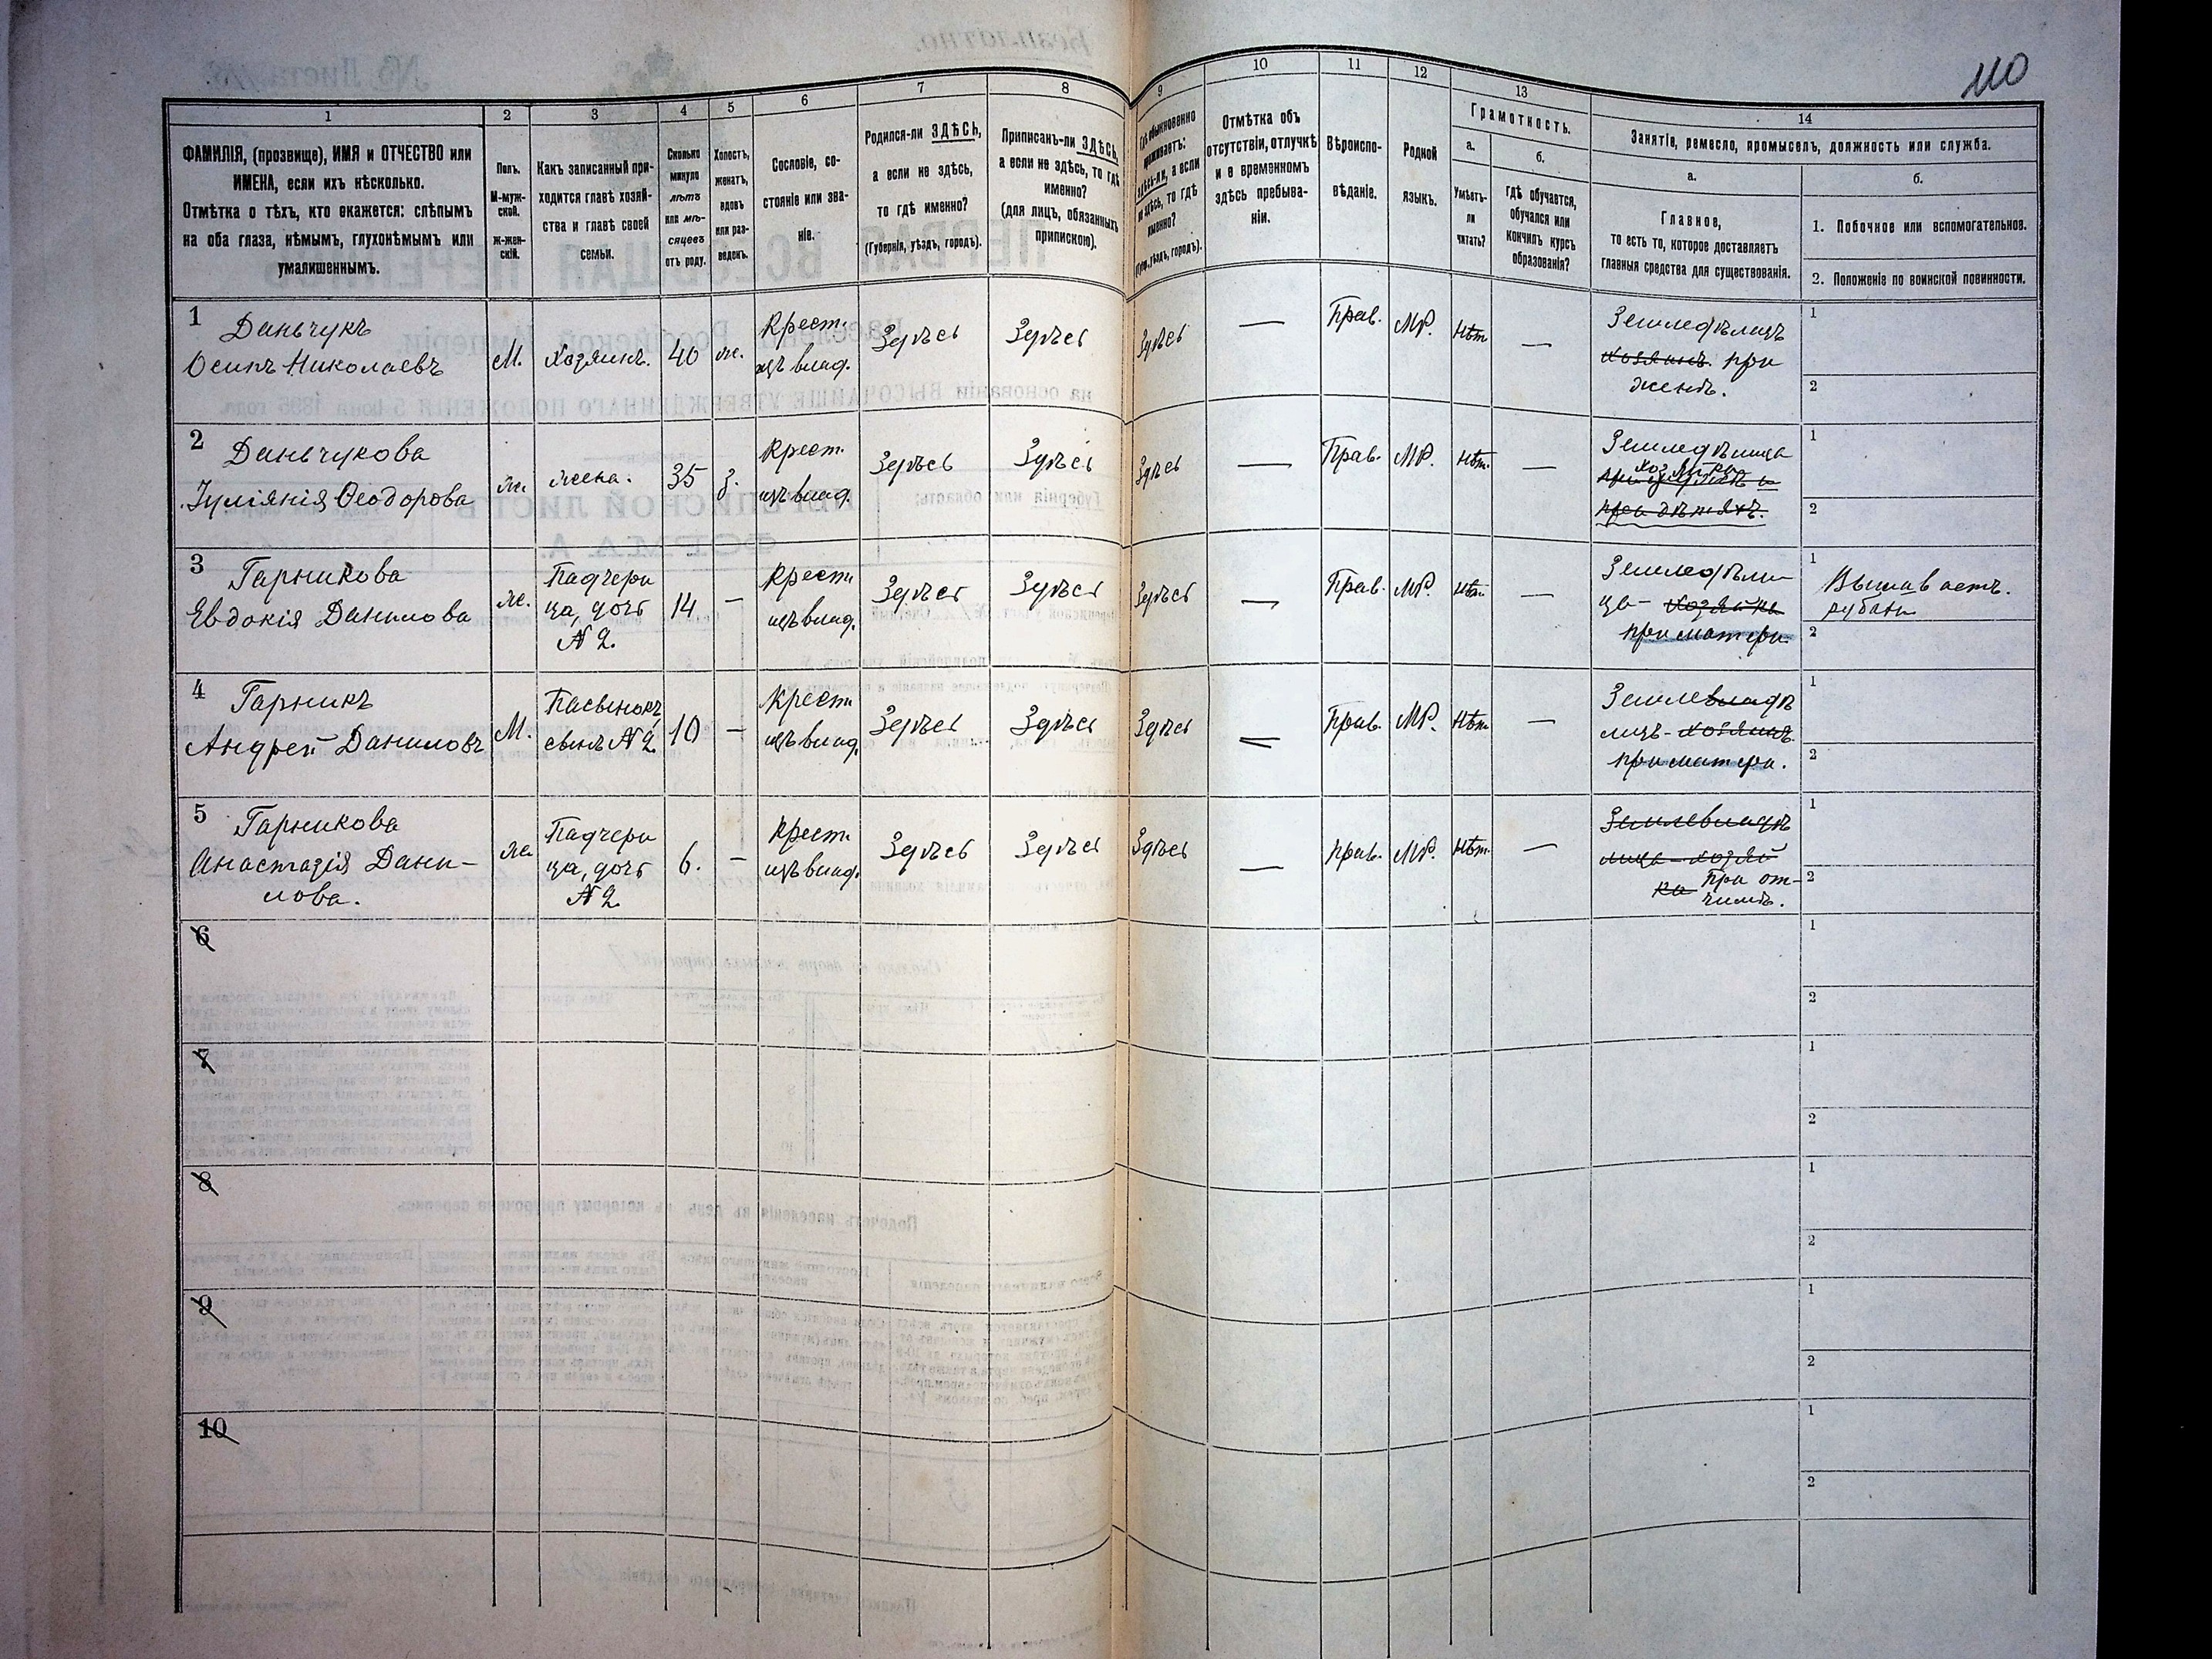 110
1 2 3 4 5 6 7 8 9 10 11 12 13 14
ФАМИЛІЯ, (прозвище), ИМЯ и ОТЧЕСТВО или
ИМЕНА, если ихъ нѣсколько.
Отмѣтка о тѣхъ, кто окажется: слѣпымъ
на оба глаза, нѣмымъ, глухонѣмымъ или
умалишеннымъ.
Полъ.
М-муж-
ской.
ж-жен-
скій.
Какъ записанный при-
ходится главѣ хозяй-
ства и главѣ своей
семьи.
Сколько
минуло
лѣтъ
или мѣ-
сяцевъ
отъ роду.
Холостъ,
женатъ,
вдовъ
или раз-
веденъ.
Сословіе, со-
стояніе или зва-
ніе.
Родился-ли ЗДѢСЬ,
а если не здѣсь,
то гдѣ именно?
(Губернія, уѣздъ, городъ).
Приписанъ-ли ЗДѢСЬ,
а если не здѣсь, то гдѣ
именно?
(для лицъ, обязанныхъ
припискою).
Гдѣ обыкновенно
проживаетъ:
здѣсь-ли, а если
не здѣсь, то гдѣ
именно?
(Губ., уѣздъ, городъ).
Отмѣтка объ
отсутствіи, отлучкѣ
и о временномъ
здѣсь пребыва-
ніи.
Вѣроиспо-
вѣданіе.
Родной
языкъ.
Грамотность.
а.
Умѣетъ-
ли
читать?
б.
гдѣ обучается,
обучался или
кончилъ курсъ
образованія?
Занятіе, ремесло, промыселъ, должность или служба.
а.
Главное,
то есть то, которое доставляетъ
главныя средства для существованія.
б.
1. Побочное или вспомогательное.
2. Положеніе по воинской повинности.
1 Даньчукъ
Осипъ Николаевъ
М.
Хозяинъ.
40
ж.
Крест.
изъ влад.
Здѣсь
Здѣсь
Здѣсь
—
Прав.
МР.
Нѣт
—
Земледѣлецъ
хозяинъ. при
женѣ.
1
2
2 Даньчукова
Іуліянія Ѳеодорова
ж.
жена.
35
з.
Крест.
изъ влад.
Здѣсь
Здѣсь
Здѣсь
—
Прав.
МР.
Нѣт.
—
1
2
3 Гарникова
Евдокія Данилова
ж.
Падчери
ца, дочь
№ 2.
14
—
Крест
изъ влад.
Здѣсь
Здѣсь
Здѣсь
—
Прав.
МР.
Нѣт
—
Земледѣли
ца- хозяйка
при матери.
1 Вышиваетъ.
рубахи
2
4 Гарникъ
Андрей Даниловъ
М.
Пасынокъ,
сынъ № 2.
10
—
Крест
изъ влад.
Здѣсь
Здѣсь
Здѣсь
—
Прав.
МР.
Нѣт
—
Землевладѣ
лецъ- хозяинъ.
при матери.
1
2
5 Гарникова
Анастазія Дани-
лова.
ж.
Падчери
ца, дочь
№ 2.
6.
—
Крест.
изъ влад.
Здѣсь
Здѣсь
Здѣсь
—
прав.
МР.
Нѣт.
—
Землевладѣ
лица - хозяй
ка При от-
чимѣ.
1
2
6
1
2
7
1
2
8
1
2
9
1
2
10
1
2